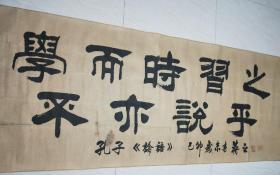 學而時習之
不亦說乎
孔子《論語》 己卯歲末